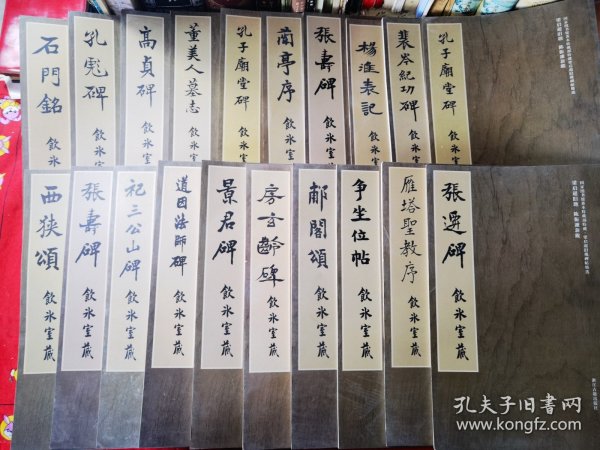 石門銘
飲氷室
孔彪碑
飲氷室
高貞碑
飲氷室
董美人墓志
飲氷室
孔子廟堂碑
飲氷室
蘭亭序
飲氷室
張壽碑
飲氷室
楊淮表記
飲氷室
裴岑紀功碑
飲氷室
孔子廟堂碑
飲氷室
西狹頌
飲氷室藏
張壽碑
飲氷室藏
祀三公山碑
飲氷室藏
道因法師碑
飲氷室藏
景君碑
飲氷室藏
房玄齡碑
飲氷室藏
郙閣頌
飲氷室藏
争坐位帖
飲氷室藏
雁塔聖教序
飲氷室藏
張遷碑
飲氷室藏
浙江古籍出版社
孔夫子旧書网